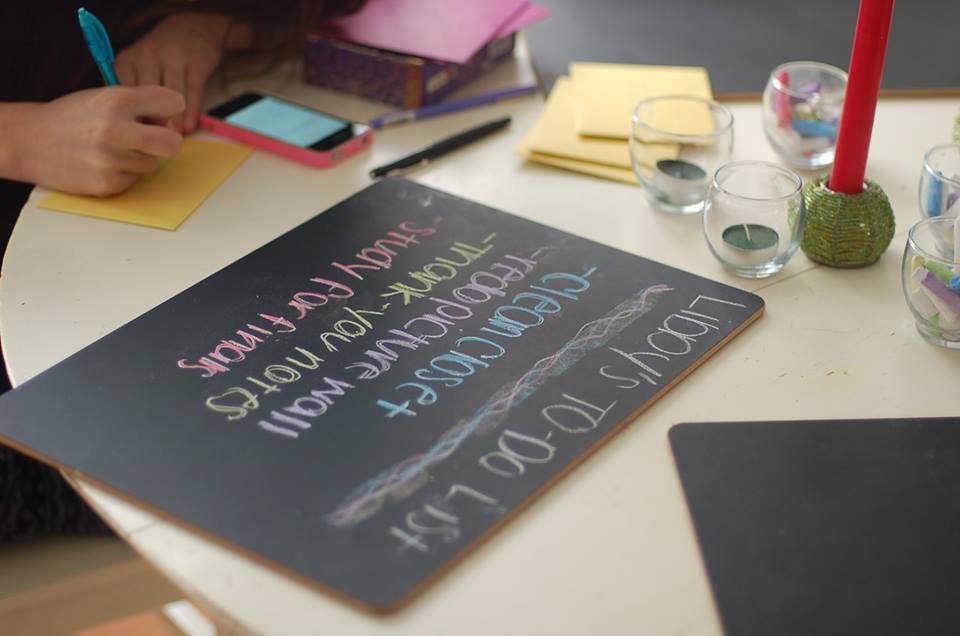 Libby's TO-DO List
-clean closet
-redo picture wall
-Thank-you notes
-Study for finals